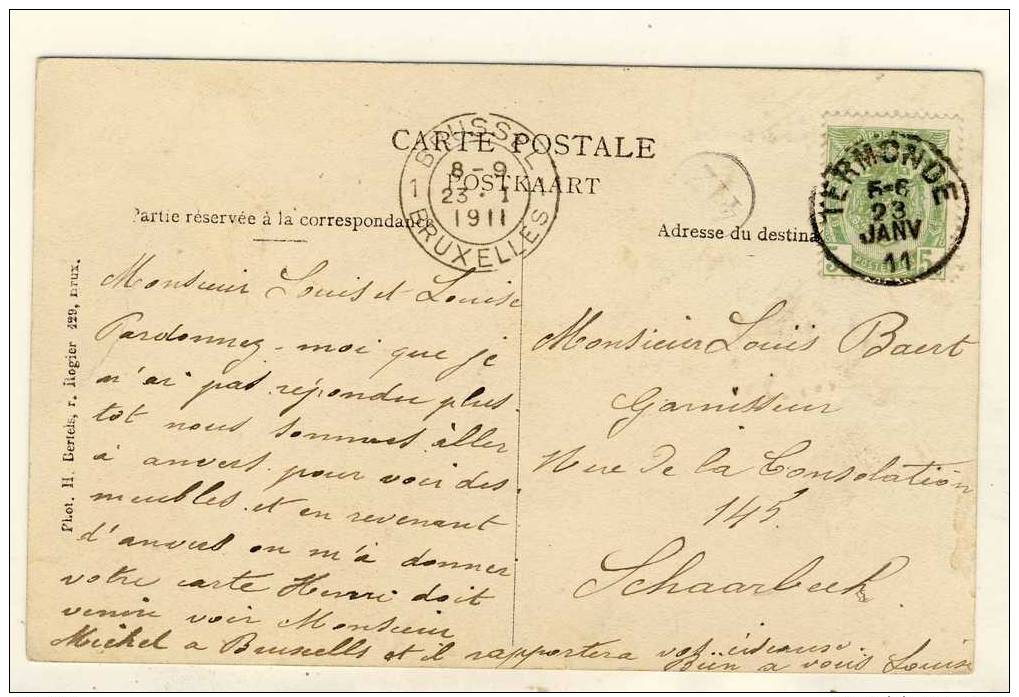 CARTE POSTALE
POSTKAART
BRUSSEL
1 8-9 1
23·I
1911
BRUXELLES
TERMONDE
5-6
23
JANV
11
5 POSTES 5
Partie réservée à la correspondance
Adresse du destina
Phot. H. Bertels, r. Rogier 429, Brux.
Monsieur Louis et Louise
Pardonnez-moi que je
n'ai pas répondu plus
tot nous sommes aller
à anvers pour voir des
meubles et en revenant
d'anvers on m'a donner
votre carte Henri doit
venire voir Monsieur
Michel a Bruxells et il rapportera vos
Bien a vous Louise
Monsieur Louis Baert
Garnisseur
Rue de la Consolation
145.
Schaarbeek.